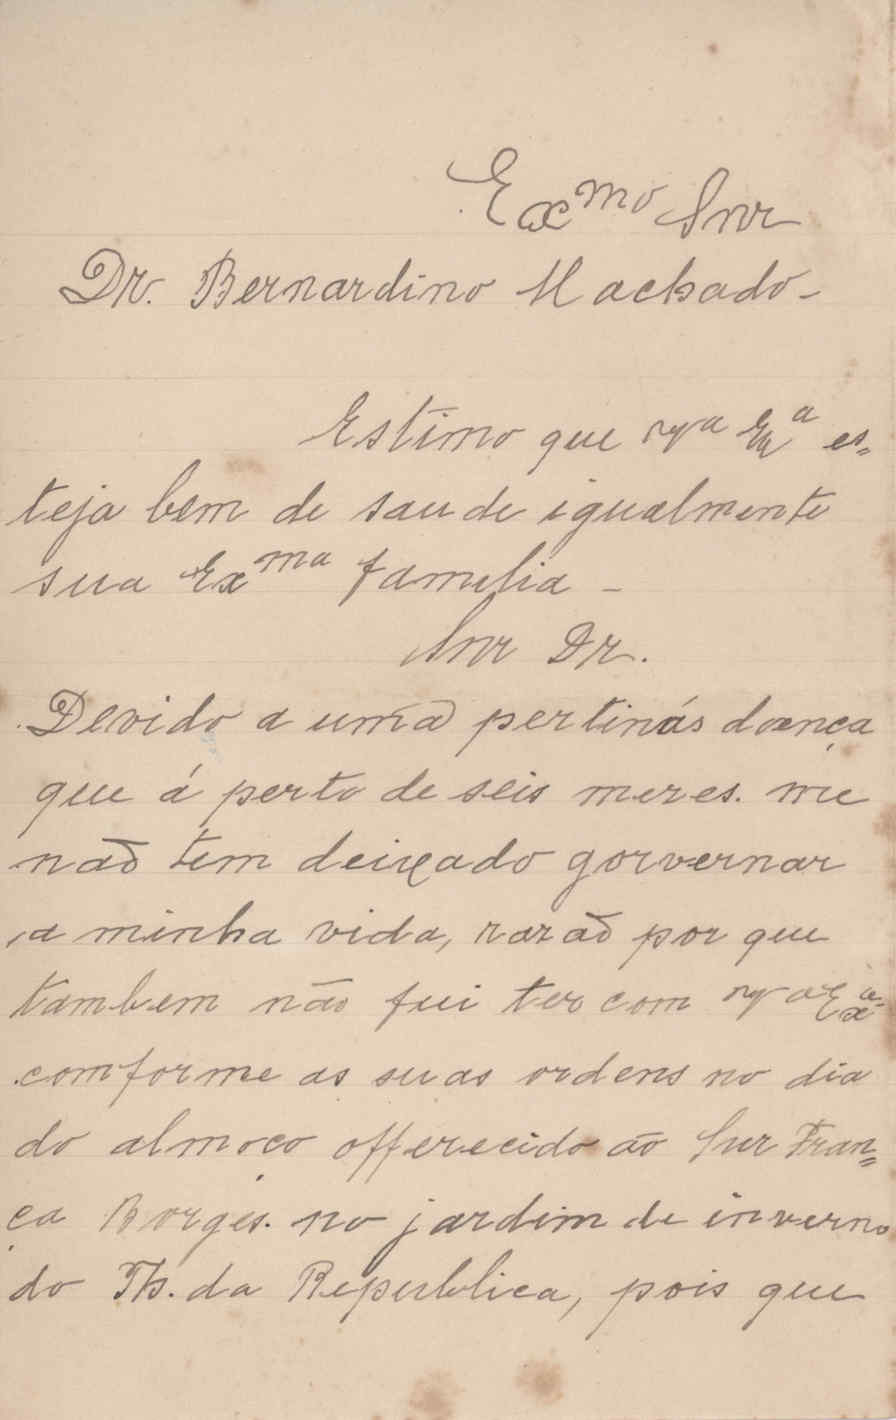 Exmo Snr
Dr. Bernardino Machado -
Estimo que Va Exa es=
teja bem de saude igualmente
sua Exma familia -
Snr Dr.
Devido a uma pertinás doença
que á perto de seis mezes. me
não tem deixado gorvernar
a minha vida, razão por que
tambem não fui ter com Va Exa.
comforme as suas ordens no dia
do almoco offerecido ao Snr Fran=
ça Borges. no jardim de inverno
do Th. da Republica, pois que